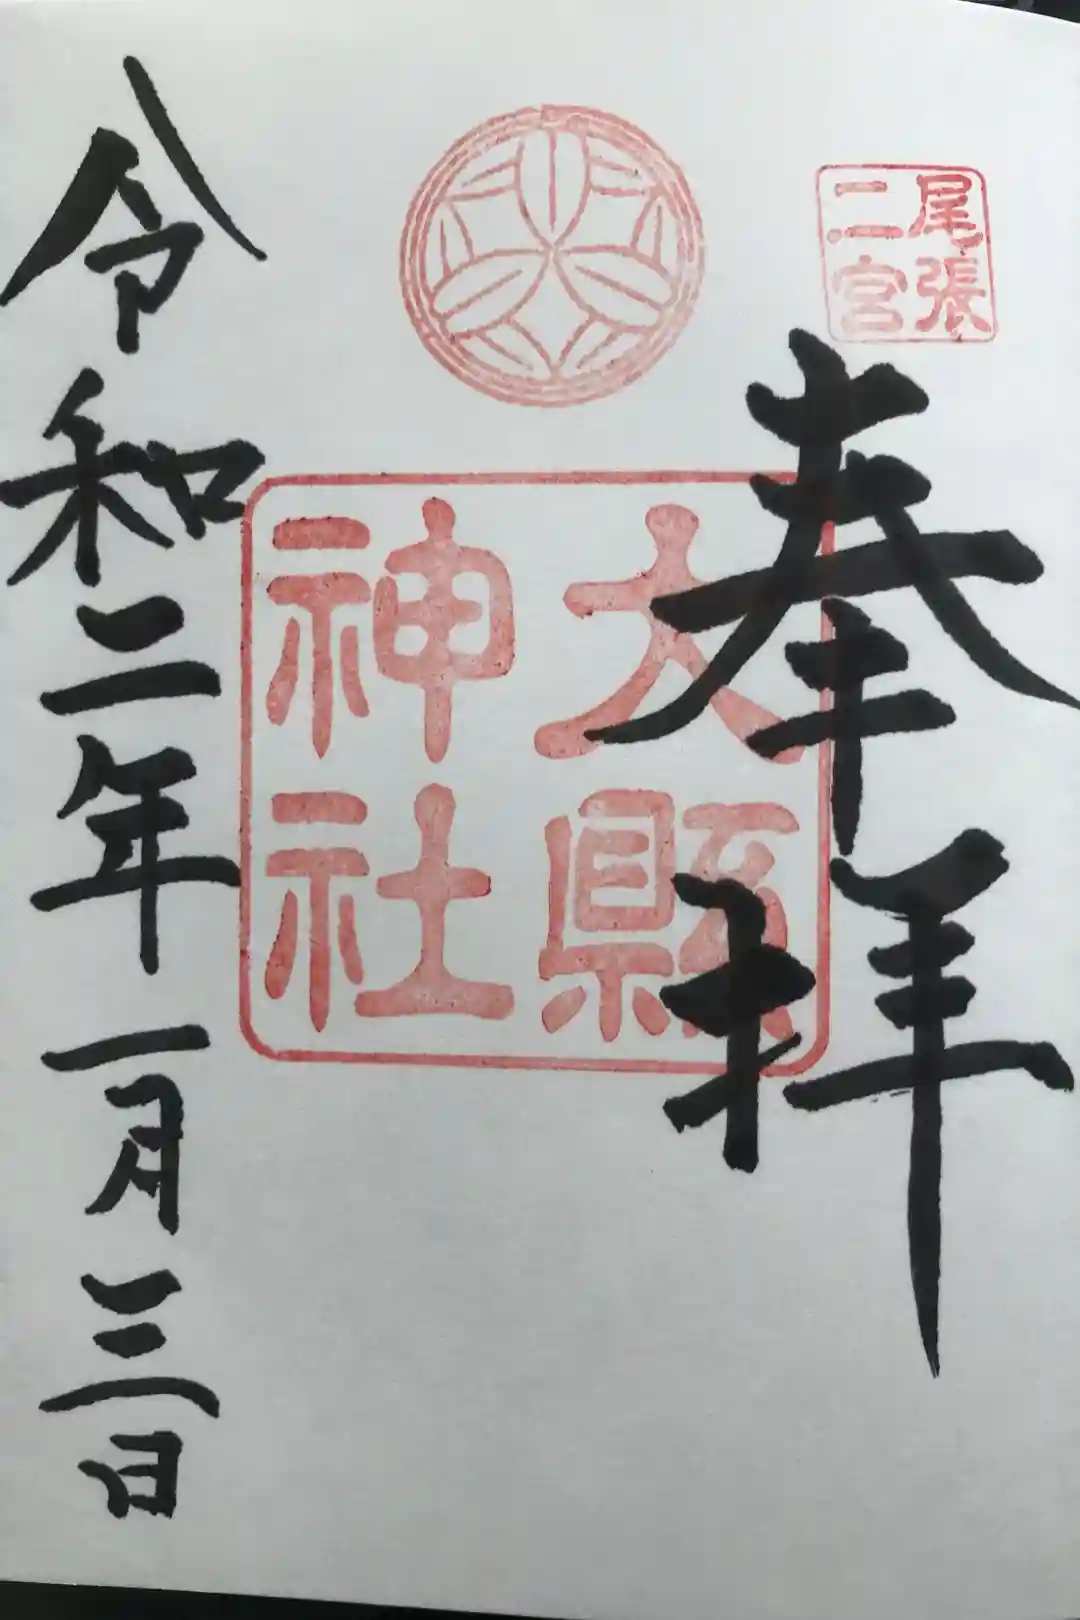 尾張
二宮
奉拝
大縣
神社
令和二年一月三日